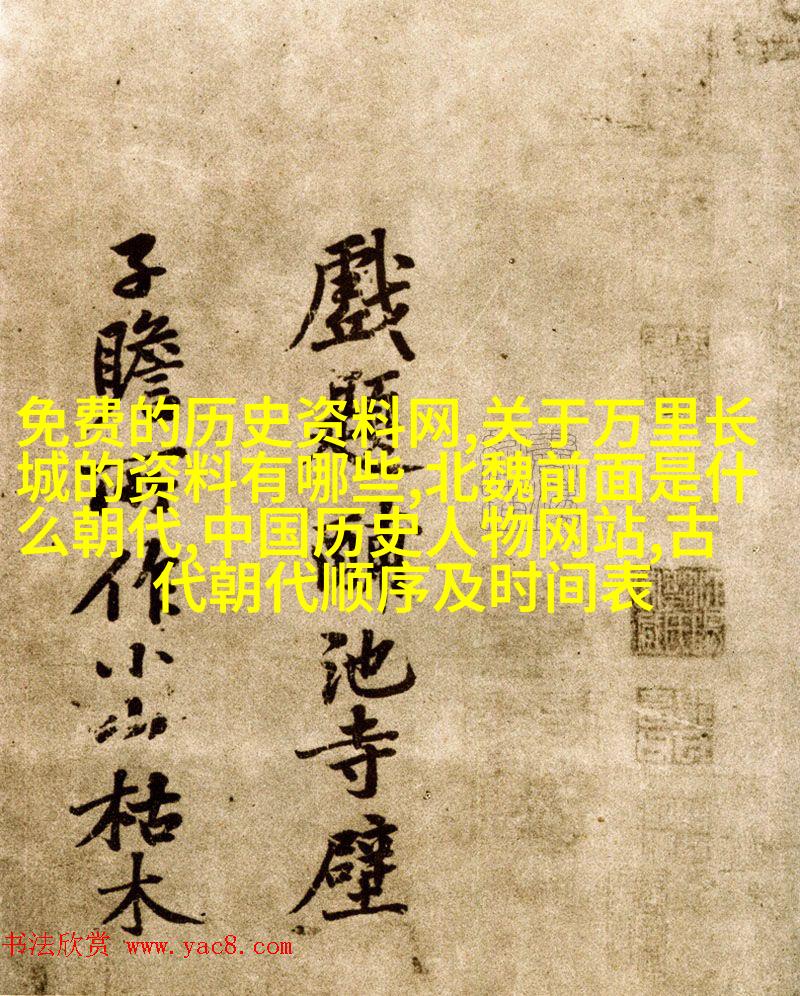 免费的历史资料网,关于万里长
城的资料有哪些,北魏前面是什
么朝代,中国历史人物网站,古
代朝代顺序及时间表
戲題池寺壁
子瞻作小山枯木
书法欣赏 www.yac8.com